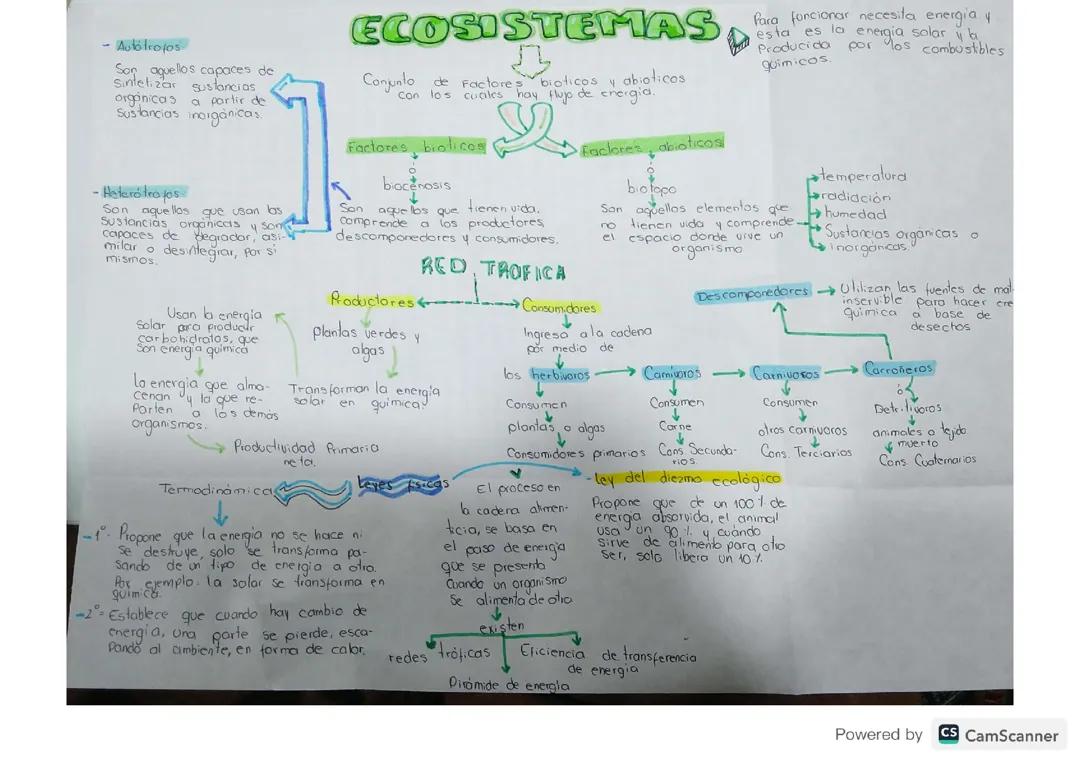 ECOSISTEMAS
Para funcionar necesita energía y
esta es la energía solar y la
Producida por los combustibles
químicos.
Conjunto de Factores bioticos y abioticos
con los cuales hay flujo de energía.
- Autótrofos
Son aquellos capaces de
sintetizar sustancias
orgánicas a partir de
sustancias inorgánicas.
- Heterótrofos:
Son aquellos que usan las
sustancias orgánicas y son
capaces de degradar, asi-
milar o desintegrar, por si
mismos.
Factores bioticos
ó
biocenosis
Son aquellos que tienen vida.
comprende a los productores,
descomponedores y consumidores.
Factores abioticos
ó
biotopo
Son aquellos elementos que
no tienen vida y comprende
el espacio donde vive un
organismo
temperatura
radiación
humedad
Sustancias orgánicas o
inorgánicas.
RED TROFICA
Productores
Usan la energía
Solar para producir
carbohidratos, que
son energía química
la energía que alma-
cenan y la que re-
Parten a los demás
organismos.
Productividad Primaria
neta.
plantas verdes y
algas
Transforman la energía
solar en química.
Consumidores
Ingresa a la cadena
por medio de
los herbivoros
Consumen
plantas o algas
Consumidores primarios
Carnivoros
Consumen
Carne
Cons. Secunda-
rios.
Carnivoros
Consumen
otros carnivoros
Cons. Terciarios
Carroñeros
ó
Detritivoros
animales o tejido
muerto
Cons. Cuaternarios
Descomponedores
Utilizan las fuentes de mat
inservible para hacer ene
química a base de
desechos
Leyes físicas
Termodinámica
-1°- Propone que la energía no se hace ni
se destruye, solo se transforma pa-
sando de un tipo de energía a otro.
Por ejemplo: la solar se transforma en
química.
-2°= Establece que cuando hay cambio de
energía, una parte se pierde, esca-
Pando al ambiente, en forma de calor.
El proceso en
la cadena alimen-
ticia, se basa en
el paso de energía
que se presenta
Cuando un organismo
Se alimenta de otro
existen
redes tróficas
Pirámide de energía
Eficiencia de transferencia
de energía
- Ley del diezmo ecológico
Propone que de un 100% de
energía absorvida, el animal
usa un 90% y cuando
sirve de alimento para otro
ser, solo libera un 10%.
Powered by CS CamScanner